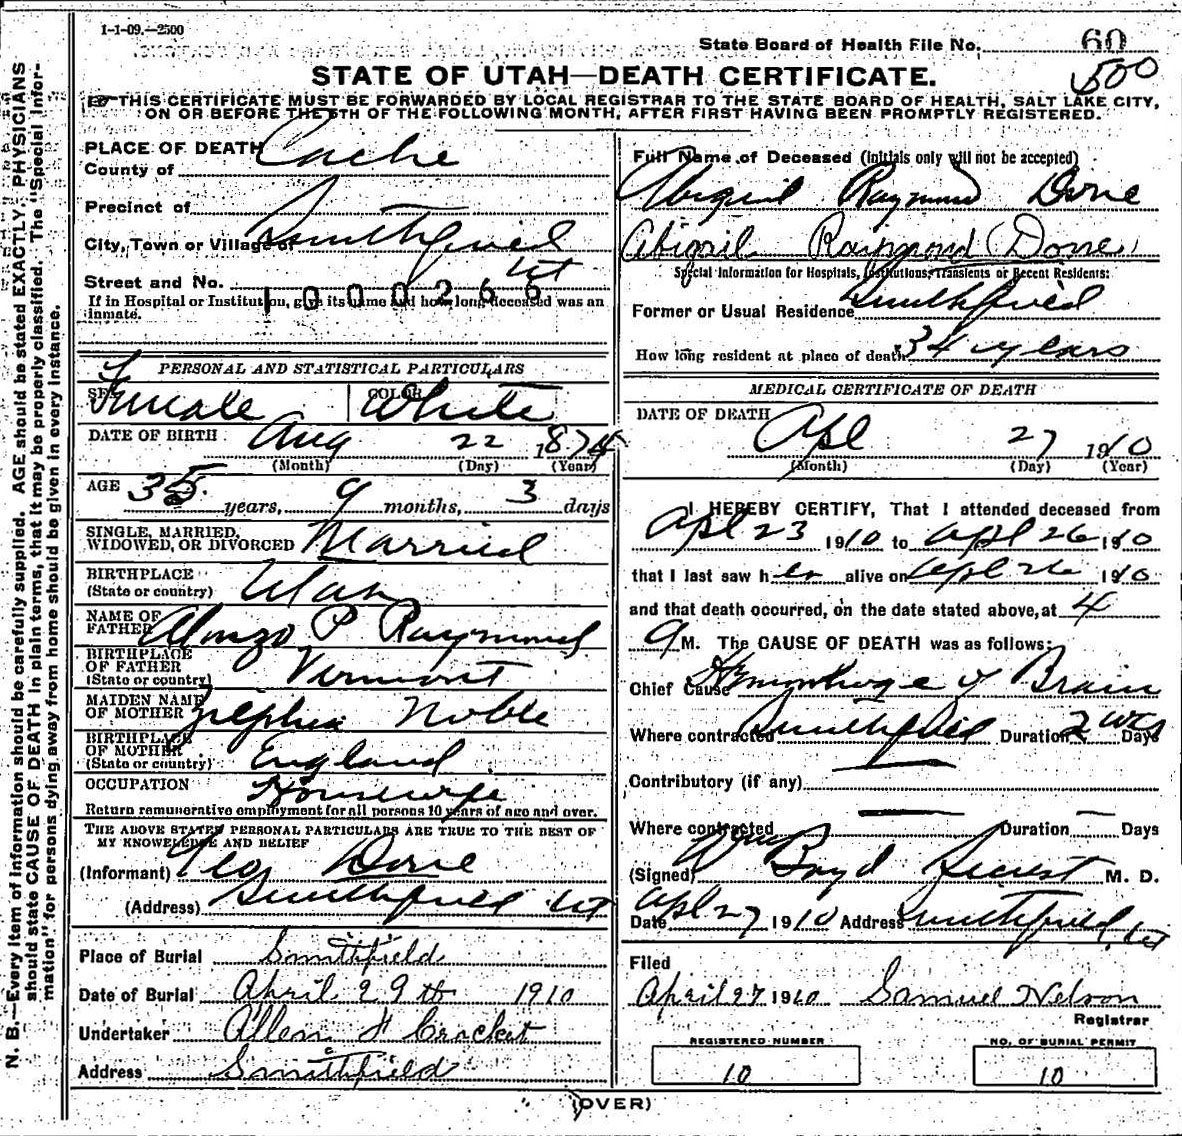 1-1-09.—2500
State Board of Health File No. 60
500
STATE OF UTAH—DEATH CERTIFICATE.
THIS CERTIFICATE MUST BE FORWARDED BY LOCAL REGISTRAR TO THE STATE BOARD OF HEALTH, SALT LAKE CITY,
ON OR BEFORE THE 5TH OF THE FOLLOWING MONTH, AFTER FIRST HAVING BEEN PROMPTLY REGISTERED.
N. B.—Every item of information should be carefully supplied. AGE should be stated EXACTLY. PHYSICIANS
should state CAUSE OF DEATH in plain terms, that it may be properly classified. The "Special Infor-
mation" for persons dying away from home should be given in every instance.
PLACE OF DEATH
County of Cache
Precinct of
City, Town or Village of Smithfield
Ut
Street and No.
1000266
If in Hospital or Institution, give its name and how long deceased was an
inmate.
PERSONAL AND STATISTICAL PARTICULARS
SEX Female COLOR White
DATE OF BIRTH Aug 22 1874
(Month) (Day) (Year)
AGE 35 years, 9 months, 3 days
SINGLE, MARRIED,
WIDOWED, OR DIVORCED Married
BIRTHPLACE
(State or country) Utah
NAME OF
FATHER Alonzo P Raymond
BIRTHPLACE
OF FATHER
(State or country) Vermont
MAIDEN NAME
OF MOTHER Noble
BIRTHPLACE
OF MOTHER
(State or country) England
OCCUPATION Housewife
Return remunerative employment for all persons 10 years of age and over.
THE ABOVE STATED PERSONAL PARTICULARS ARE TRUE TO THE BEST OF
MY KNOWLEDGE AND BELIEF
(Informant) Geo Done
(Address) Smithfield Ut
Place of Burial Smithfield
Date of Burial April 29th 1910
Undertaker Allen H Crocket
Address Smithfield
Full Name of Deceased (Initials only will not be accepted)
Abigail Raymond Done
Abigail Raymond (Done)
Special Information for Hospitals, Institutions, Transients or Recent Residents:
Former or Usual Residence Smithfield
How long resident at place of death 34 years
MEDICAL CERTIFICATE OF DEATH
DATE OF DEATH Apl 27 1910
(Month) (Day) (Year)
I HEREBY CERTIFY, That I attended deceased from
Apl 23 1910 to Apl 26 1910
that I last saw her alive on Apl 26 1910
and that death occurred, on the date stated above, at 4
M. The CAUSE OF DEATH was as follows:
Chief Cause Hemorrhage of Brain
Where contracted Smithfield Duration 2 Days
Contributory (if any) —
Where contracted — Duration — Days
(Signed) Wm Boyd M. D.
Date Apl 27 1910 Address Smithfield, Ut
Filed
April 27 1910 Samuel Nelson
Registrar
REGISTERED NUMBER
10
NO. OF BURIAL PERMIT
10
(OVER)